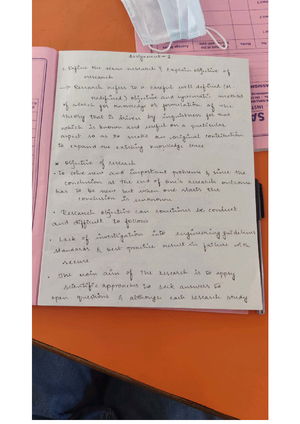 Assignment-1
1. Define the term research & Explain objective of
research
→ Research refers to a careful well defined (or
redefined) objective and systematic method
of search for knowledge or formulation of the
theory that is driven by inquisitiveness for that
which is known and useful on a particular
aspect so as to make an original contribution
to expand the existing knowledge base.
* Objective of research
- To solve new and important problems & since the
conclusion at the end of one's research outcome
has to be new but when one starts the
conclusion is unknown
• Research objective can sometimes be conduct
and difficult to follow
• Lack of investigation into engineering guidelines
standards & best practice result in failure with
• The main aim of the research is to apply
scientific approaches to seek answers to
open questions & although each research study